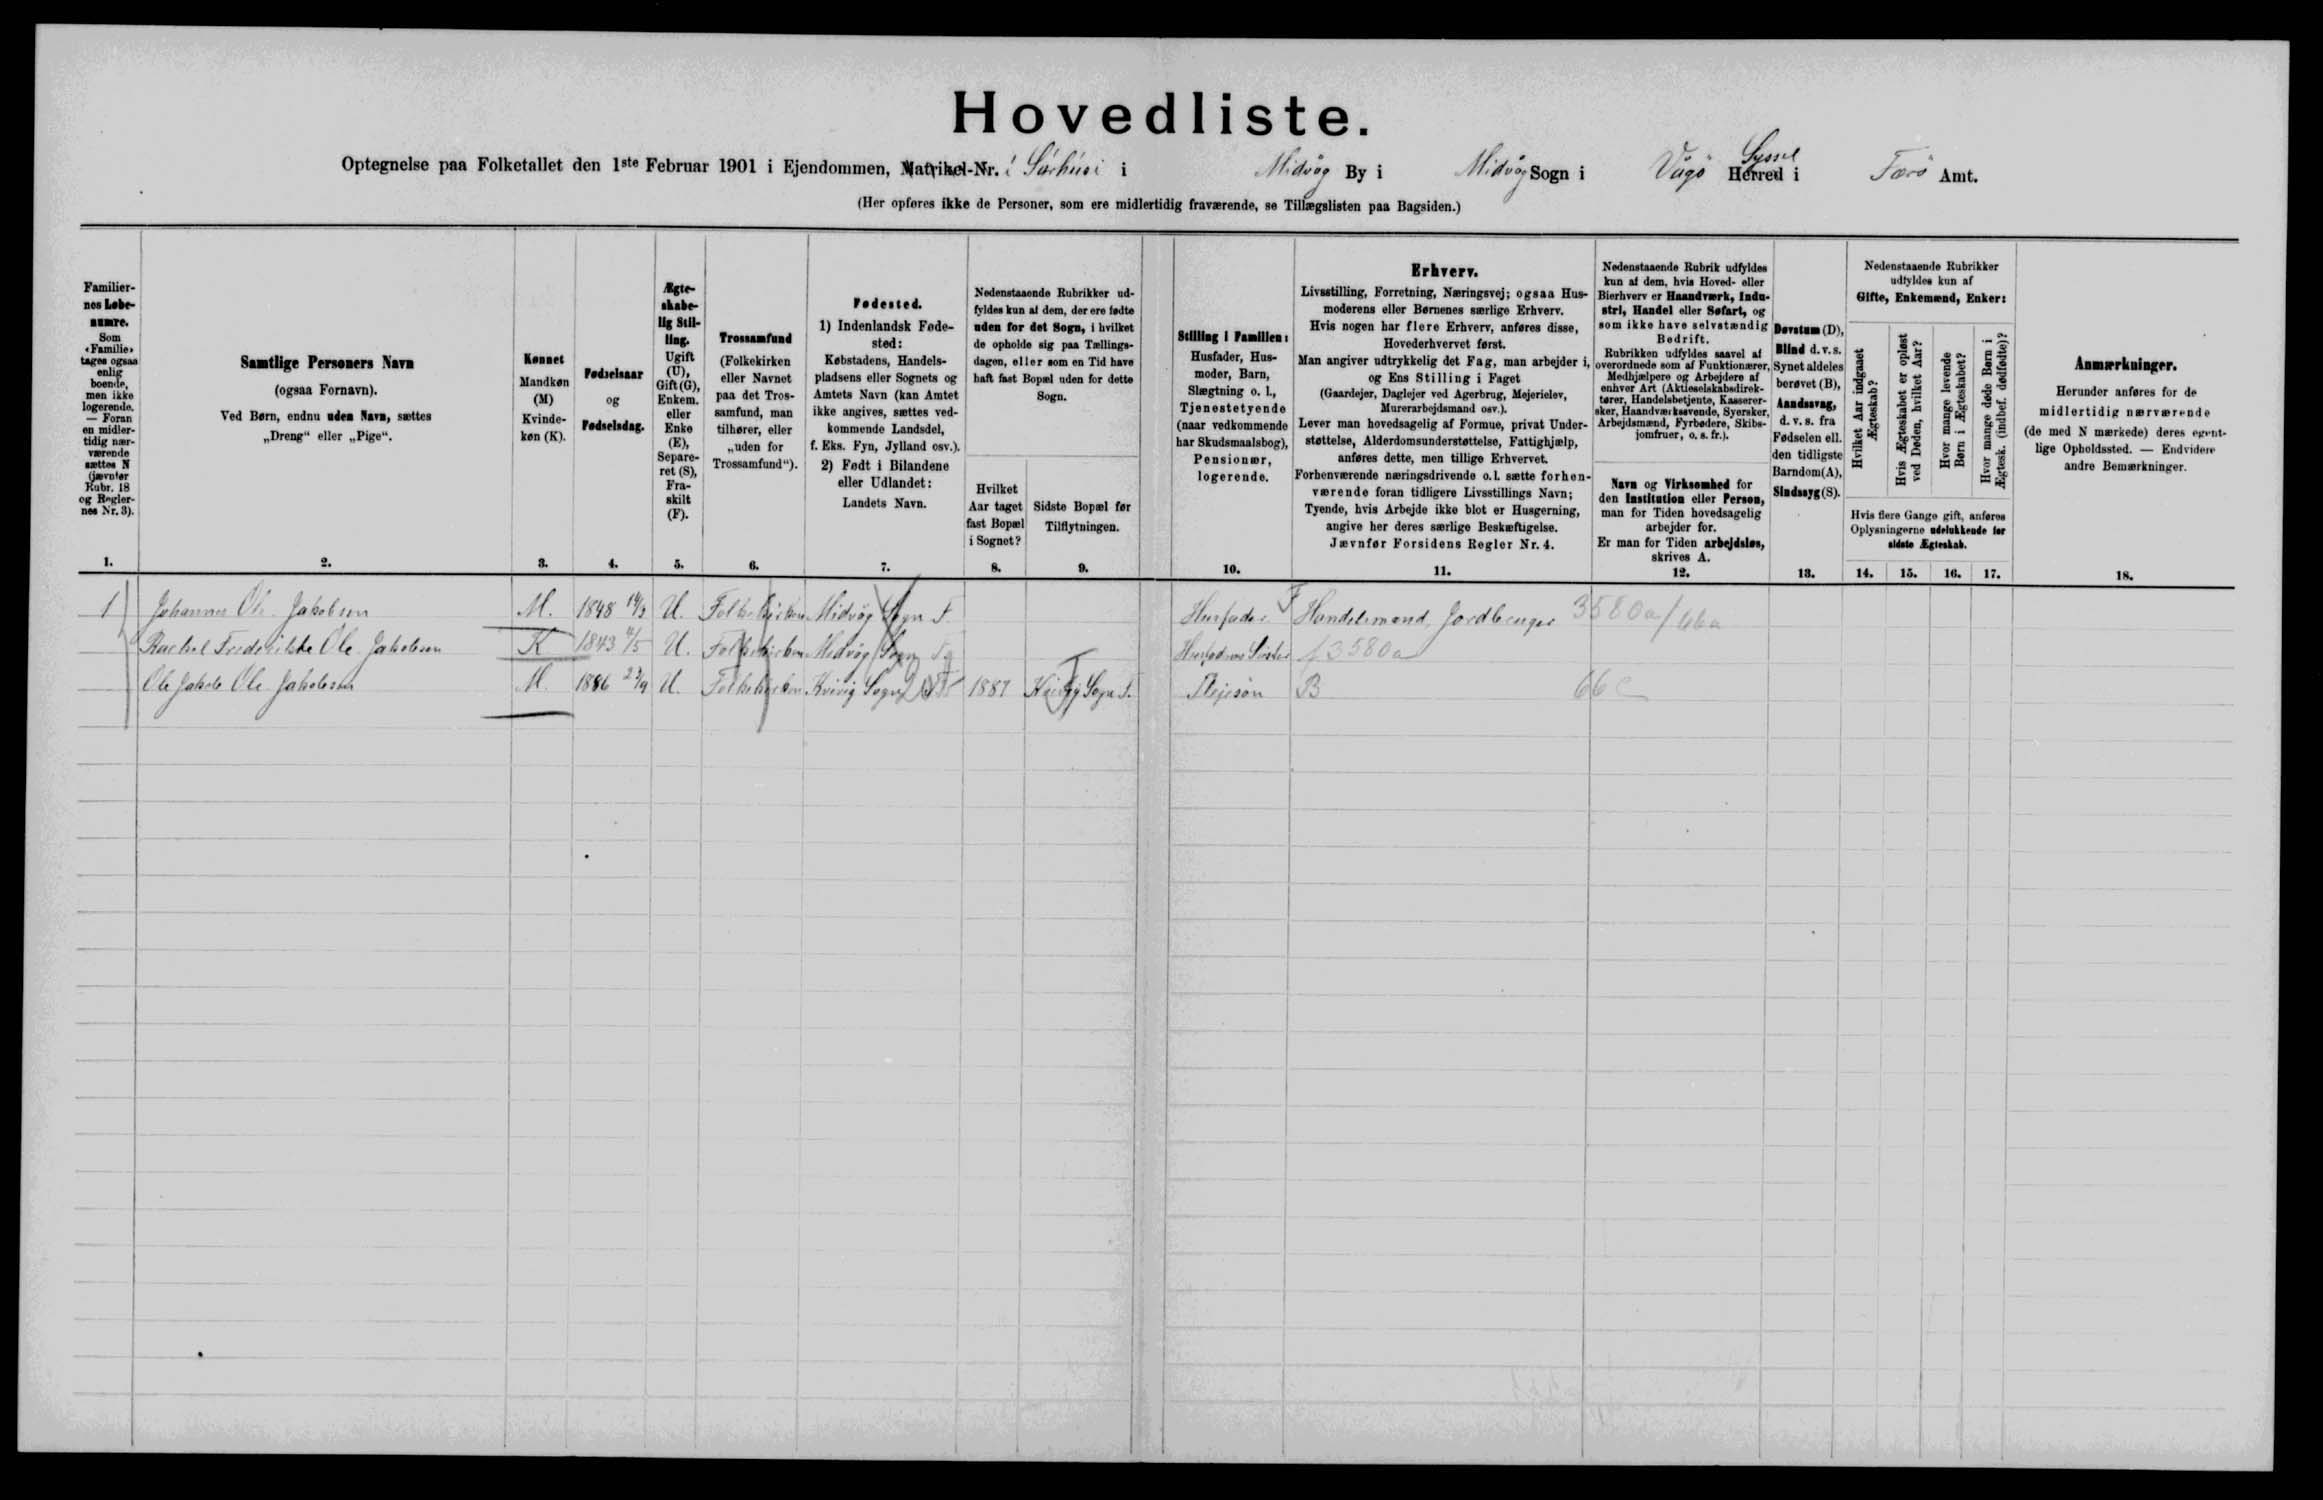 Hovedliste.
Optegnelse paa Folketallet den 1ste Februar 1901 i Ejendommen, Matrikel-Nr. i Sørhúsi i Midvåg By i Midvåg Sogn i Vågø Herred Syssel i Færø Amt.
(Her opføres ikke de Personer, som ere midlertidig fraværende, se Tillægslisten paa Bagsiden.)
Familiernes Løbenumre.
Som «Familie» tages ogsaa enlig boende, men ikke logerende. — Foran en midlertidig nærværende sættes N (jævnfør Rubr. 18 og Reglernes Nr. 3).
1.
Samtlige Personers Navn
(ogsaa Fornavn).
Ved Børn, endnu uden Navn, sættes
„Dreng“ eller „Pige“.
2.
Kønnet
Mandkøn
(M)
Kvindekøn (K).
3.
Fødselsaar
og
Fødselsdag.
4.
Ægteskabelig Stilling.
Ugift (U), Gift (G), Enkem. eller Enke (E), Separeret (S), Fraskilt (F).
5.
Trossamfund
(Folkekirken eller Navnet paa det Trossamfund, man tilhører, eller „uden for Trossamfund“).
6.
Fødested.
1) Indenlandsk Fødested:
Købstadens, Handelspladsens eller Sognets og Amtets Navn (kan Amtet ikke angives, sættes vedkommende Landsdel, f. Eks. Fyn, Jylland osv.).
2) Født i Bilandene eller Udlandet:
Landets Navn.
7.
Nedenstaaende Rubrikker udfyldes kun af dem, der ere fødte uden for det Sogn, i hvilket de opholde sig paa Tællingsdagen, eller som en Tid have haft fast Bopæl uden for dette Sogn.
Hvilket Aar taget fast Bopæl i Sognet?
8.
Sidste Bopæl før Tilflytningen.
9.
Stilling i Familien:
Husfader, Husmoder, Barn, Slægtning o. l., Tjenestetyende (naar vedkommende har Skudsmaalsbog), Pensionær, logerende.
10.
Erhverv.
Livsstilling, Forretning, Næringsvej; ogsaa Husmoderens eller Børnenes særlige Erhverv.
Hvis nogen har flere Erhverv, anføres disse, Hovederhvervet først.
Man angiver udtrykkelig det Fag, man arbejder i, og Ens Stilling i Faget
(Gaardejer, Daglejer ved Agerbrug, Mejerielev, Murerarbejdsmand osv.).
Lever man hovedsagelig af Formue, privat Understøttelse, Alderdomsunderstøttelse, Fattighjælp, anføres dette, men tillige Erhvervet.
Forhenværende næringsdrivende o. l. sætte forhenværende foran tidligere Livsstillings Navn; Tyende, hvis Arbejde ikke blot er Husgerning, angive her deres særlige Beskæftigelse.
Jævnfør Forsidens Regler Nr. 4.
11.
Nedenstaaende Rubrik udfyldes kun af dem, hvis Hoved- eller Bierhverv er Haandværk, Industri, Handel eller Søfart, og som ikke have selvstændig Bedrift.
Rubrikken udfyldes saavel af overordnede som af Funktionærer, Medhjælpere og Arbejdere af enhver Art (Aktieselskabsdirektører, Handelsbetjente, Kasserersker, Haandværkssvende, Syersker, Arbejdsmænd, Fyrbødere, Skibsjomfruer, o. s. fr.).
Navn og Virksomhed for den Institution eller Person, man for Tiden hovedsagelig arbejder for.
Er man for Tiden arbejdsløs, skrives A.
12.
Døvstum (D), Blind d. v. s. Synet aldeles berøvet (B), Aandssvag, d. v. s. fra Fødselen ell. den tidligste Barndom (A), Sindssyg (S).
13.
Nedenstaaende Rubrikker udfyldes kun af
Gifte, Enkemænd, Enker:
Hvilket Aar indgaaet Ægteskab?
Hvis Ægteskabet er opløst ved Døden, hvilket Aar?
Hvor mange levende Børn i Ægteskabet?
Hvor mange døde Børn i Ægtesk. (indbef. dødfødte)?
Hvis flere Gange gift, anføres Oplysningerne udelukkende for sidste Ægteskab.
14. 15. 16. 17.
Anmærkninger.
Herunder anføres for de midlertidig nærværende (de med N mærkede) deres egentlige Opholdssted. — Endvidere andre Bemærkninger.
18.
1 Johannes Ole Jakobsen M. 1848 14/3 U. Folkekirken Midvåg Sogn F. Husfader F Handelsmand, Jordbruger 3580a/66a
Rachel Frederikke Ole Jakobsen K 1843 4/5 U. Folkekirken Midvåg Sogn Husfaders Søster f 3580a
Ole Jakob Ole Jakobsen M. 1886 23/9 U. Folkekirken Kvivig Sogn 1887 Kvivig Sogn F. Plejesøn B 66c